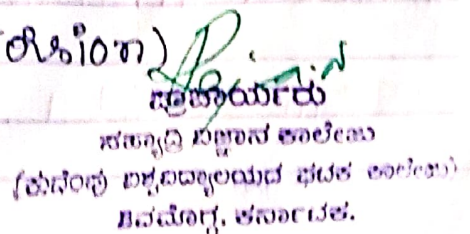 ಪ್ರಾಚಾರ್ಯರು
ಸಹ್ಯಾದ್ರಿ ವಿಜ್ಞಾನ ಕಾಲೇಜು
(ಕುವೆಂಪು ವಿಶ್ವವಿದ್ಯಾಲಯದ ಘಟಕ ಕಾಲೇಜು)
ಶಿವಮೊಗ್ಗ, ಕರ್ನಾಟಕ.